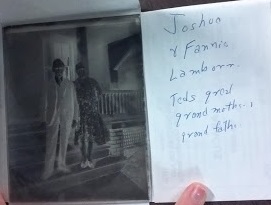 Joshoo
& Fannie
Lamborn.
Teds great
grand moth
grand fath